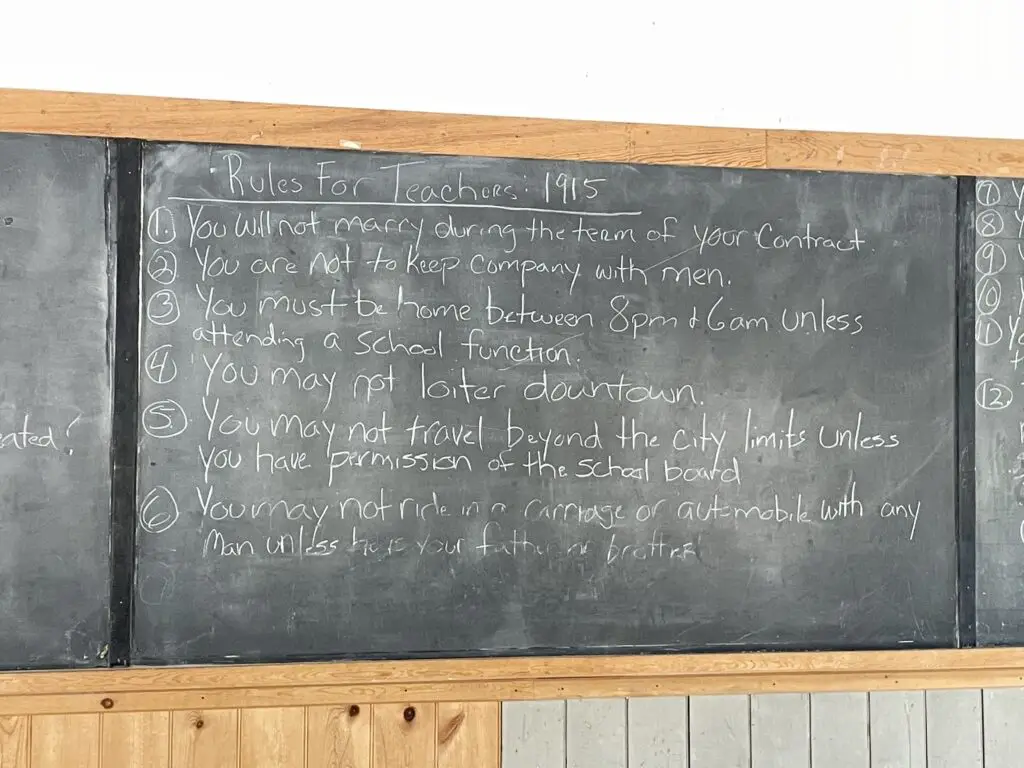 Rules For Teachers: 1915
1. You will not marry during the term of your Contract.
2 You are not to keep company with men.
3 You must be home between 8pm & 6am unless
attending a school function.
4 You may not loiter downtown.
5. You may not travel beyond the city limits unless
you have permission of the school board
6 You may not ride in a carriage or automobile with any
Man unless he is your father or brother
eated?
7 Y
8 Y
9
10
11 Yo
12